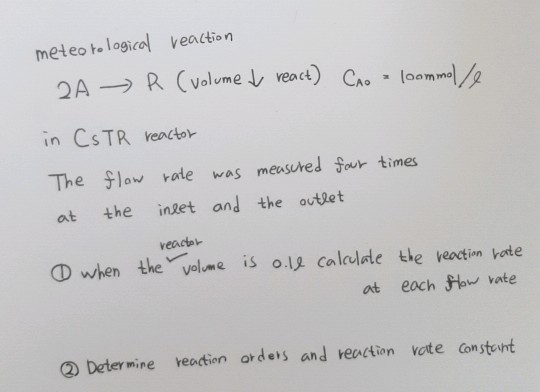 meteorological reaction
2A → R (volume ↓ react) CAO = 100mmol/l
in CSTR reactor
The flow rate was measured four times
at the inlet and the outlet
① when the reactor volume is 0.1l calculate the reaction rate
at each flow rate
② Determine reaction orders and reaction rate constant